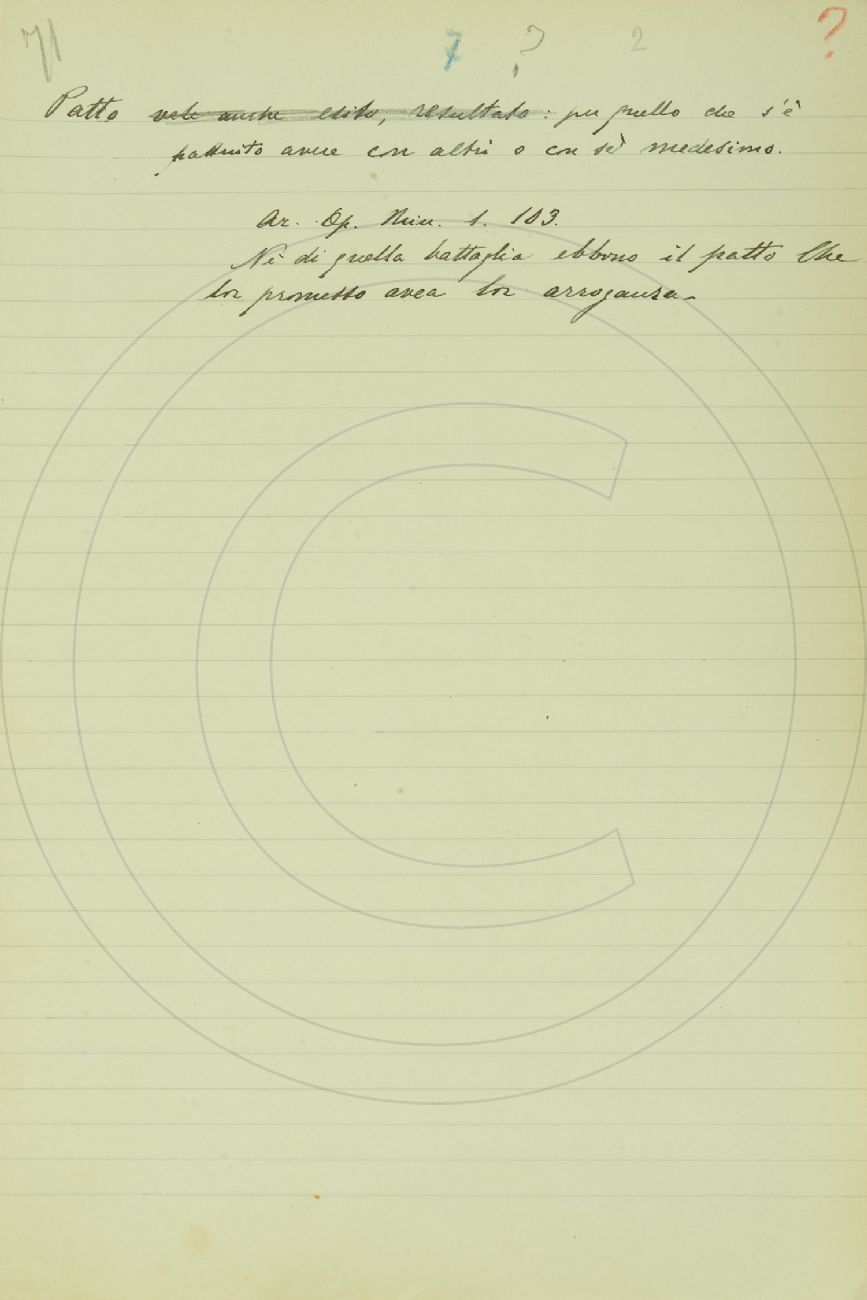 71 7 ? 2 ?
Patto vale anche esito, resultato: per quello che s'è
pattuito avere con altri o con sè medesimo.
Ar. Op. Min. 1. 103.
Nè di quella battaglia ebbono il patto Che
lor promesso avea lor arroganza.